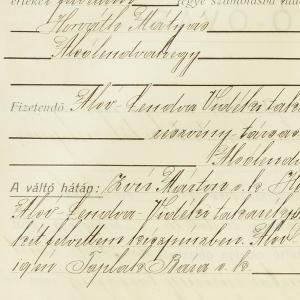 értéket
jegye számolásba
Horváth Mátyás
Alsólendvahegy
Fizetendő: Alsó-Lendva Vidéki tak
részvény-társas
Alsólend
A váltó hátán: Zver Márton s. k. H
Alsó-Lendva-Vidéki takarékp
két felvettem készpénzben. Alsó
Saplak Bára s. k.